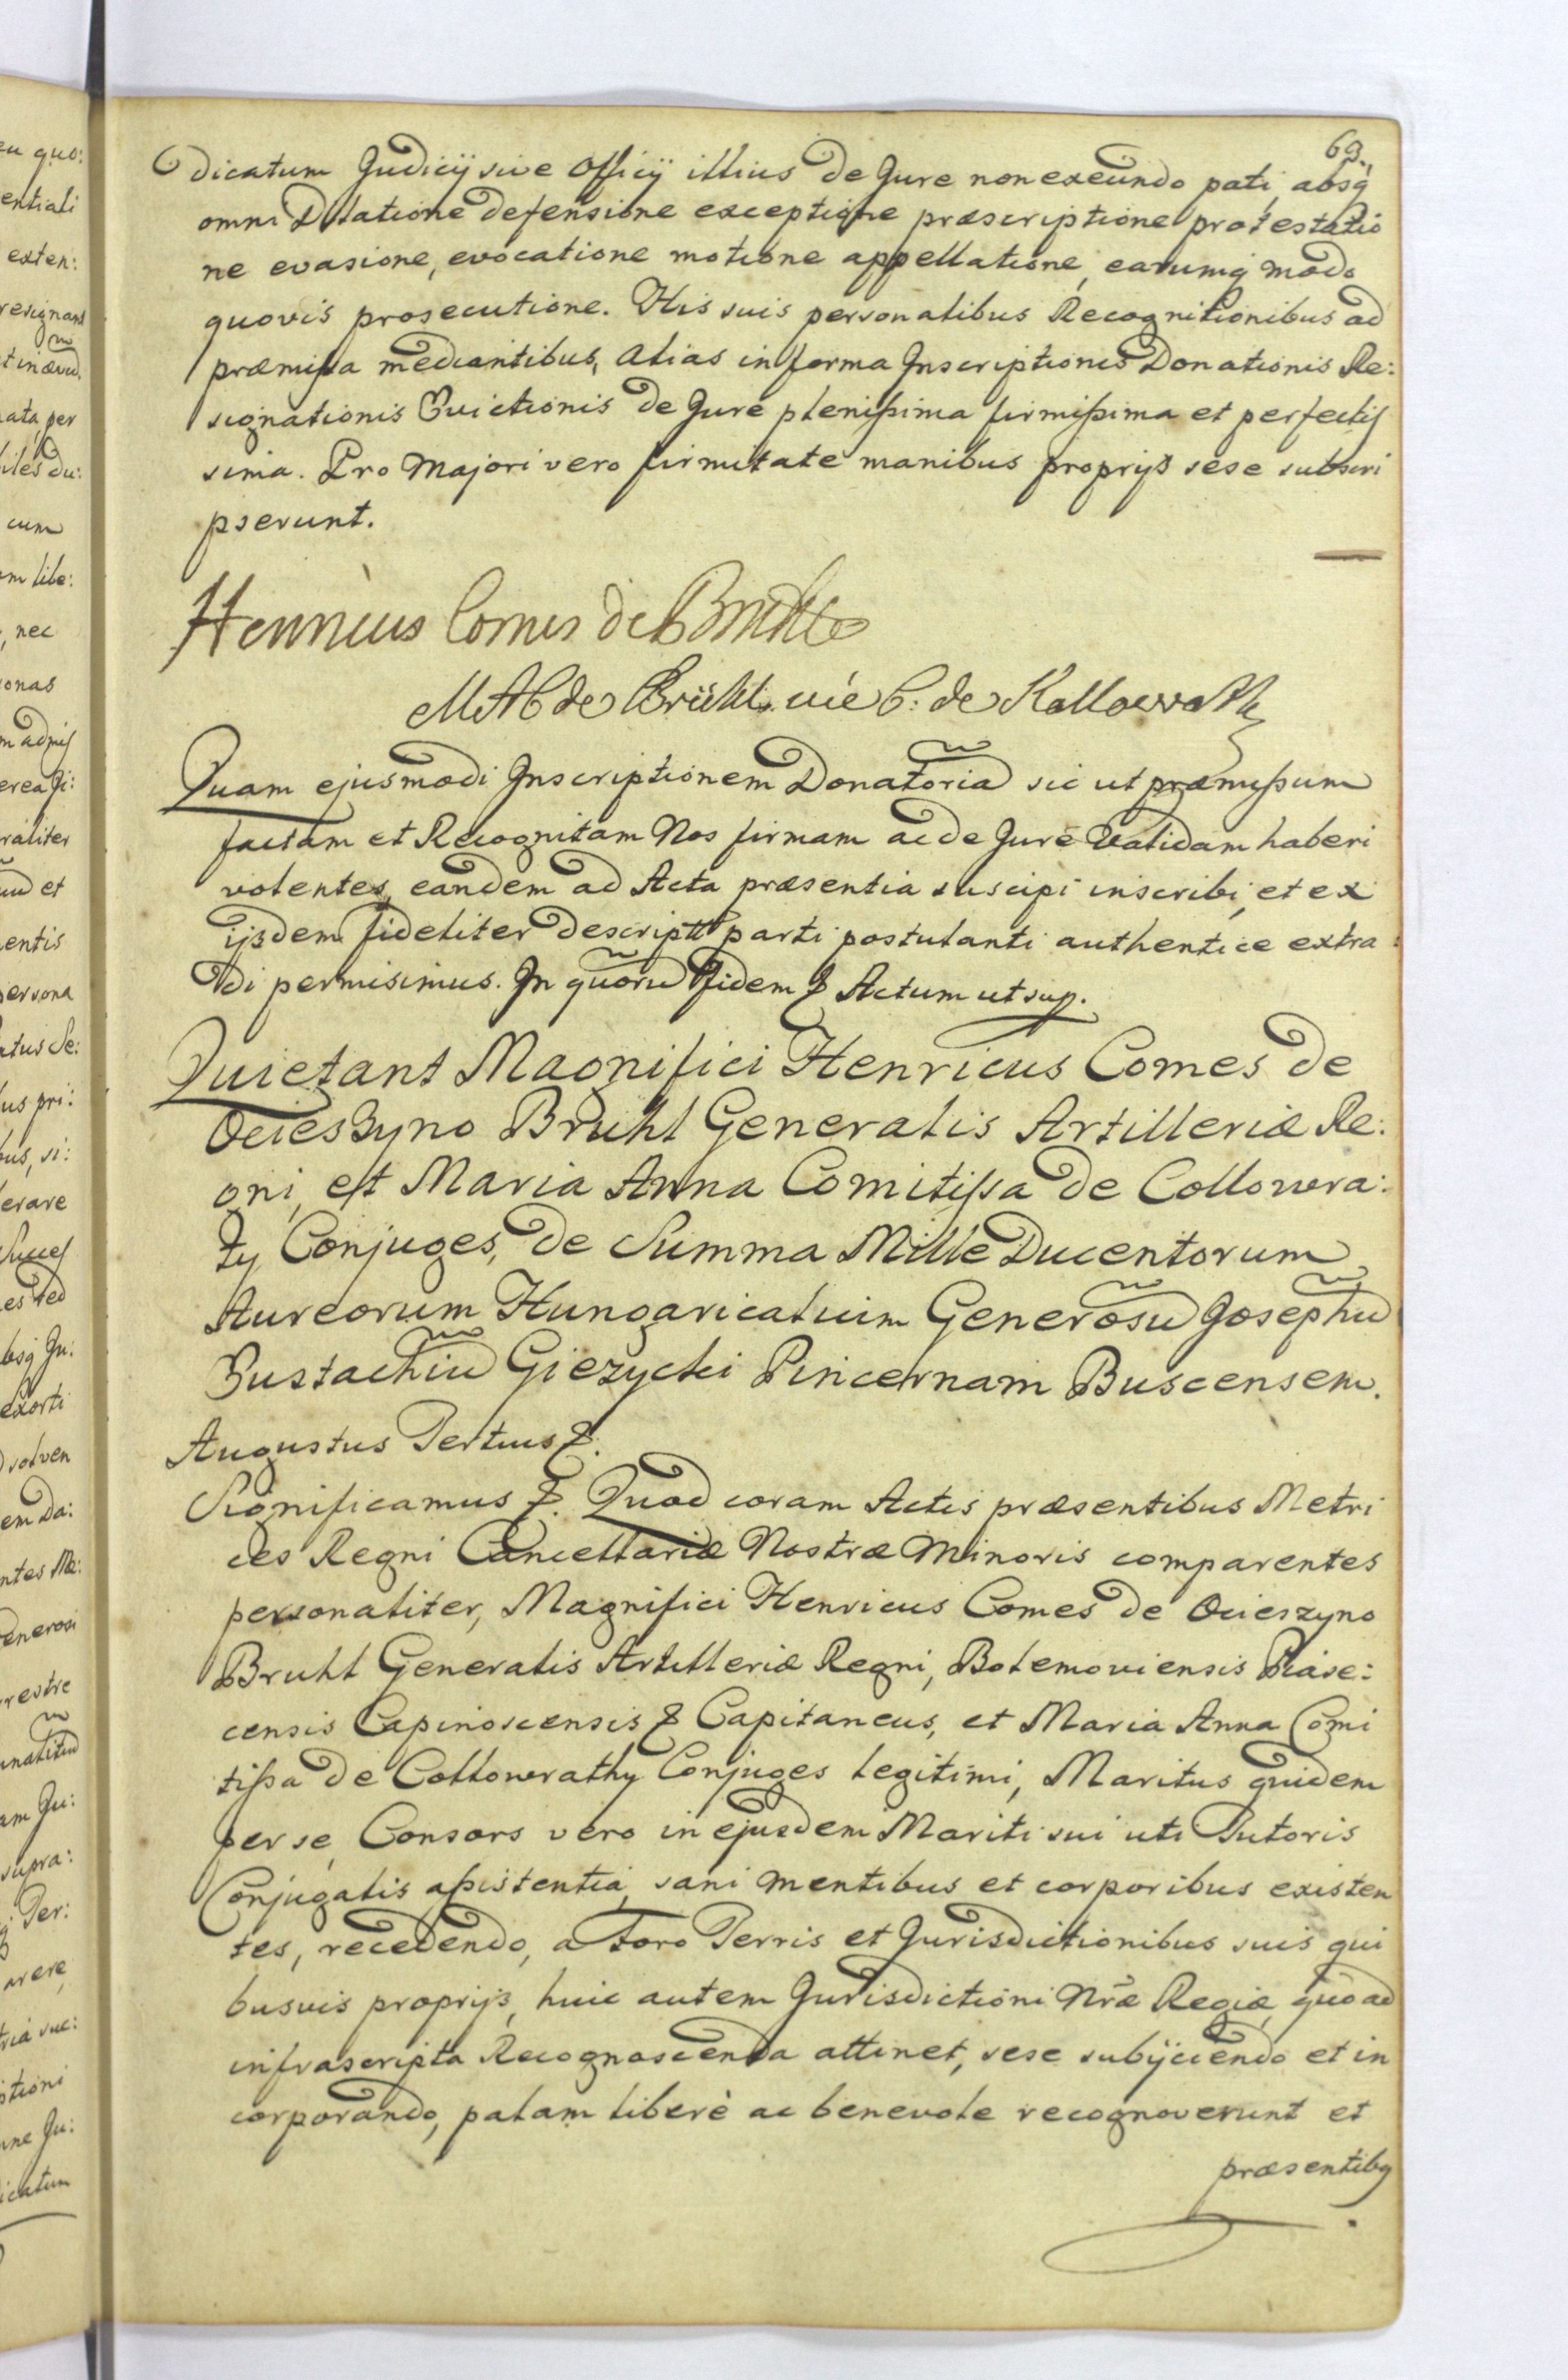 69.
dicatum Judicij sive Officij illius de Jure non exeundo pati, absq
omni Dilatione defensione exceptione præscriptione protestatio
ne evasione, evocatione motione appellatione, earumq modo
quovis prosecutione. His suis personalibus Recognitionibus ad
præmissa mediantibus, alias in forma Inscriptionis Donationis Re:
signationis Evictionis de Jure plenissima firmissima et perfectis
sima. Pro Majori vero firmitate manibus proprijs sese subscri
pserunt.
Henricus Comes de Bruhl
MAC de Brühl. née C: de Kollowrath
Quam ejusmodi Inscriptionem Donatoria sic ut præmissum
factam et Recognitam Nos firmam ac de Jure Validam haberi
volentes, eandem ad Acta præsentia suscipi inscribi, et ex
ijsdem fideliter descriptt parti postulanti authentice extra:
di permisimus. In quoru fidem & Actum ut sup.
Quietant Magnifici Henricus Comes de
Ocieszyno Bruhl Generalis Artilleriæ Re:
gni, et Maria Anna Comitissa de Collowra:
ty Conjuges, de Summa Mille Ducentorum
Aureorum Hungaricaluim Generosu Josephu
Eustachiu Giezycki Pincernam Buscensem.
Augustus Tertius &.
Significamus &. Quod coram Actis præsentibus Metri
ces Regni Cancellariæ Nostræ Minoris comparentes
personaliter, Magnifici Henricus Comes de Ocieszyno
Bruhl Generalis Artilleriæ Regni, Bolemoviensis Piase:
censis Capinoscensis & Capitaneus, et Maria Anna Comi
tissa de Collowrathy Conjuges legitimi, Maritus quidem
per se, Consors vero in ejusdem Mariti sui uti Tutoris
Conjugalis assistentia, sani mentibus et corporibus existen
tes, recedendo, a Foro Terris et Jurisdictionibus suis qui
busvis proprijs, huic autem Jurisdictioni Nræ Regiæ, quo ad
infrascripta Recognoscenda attinet, sese subijciendo et in
corporando, palam liberè ac benevole recognoverunt et
præsentibq